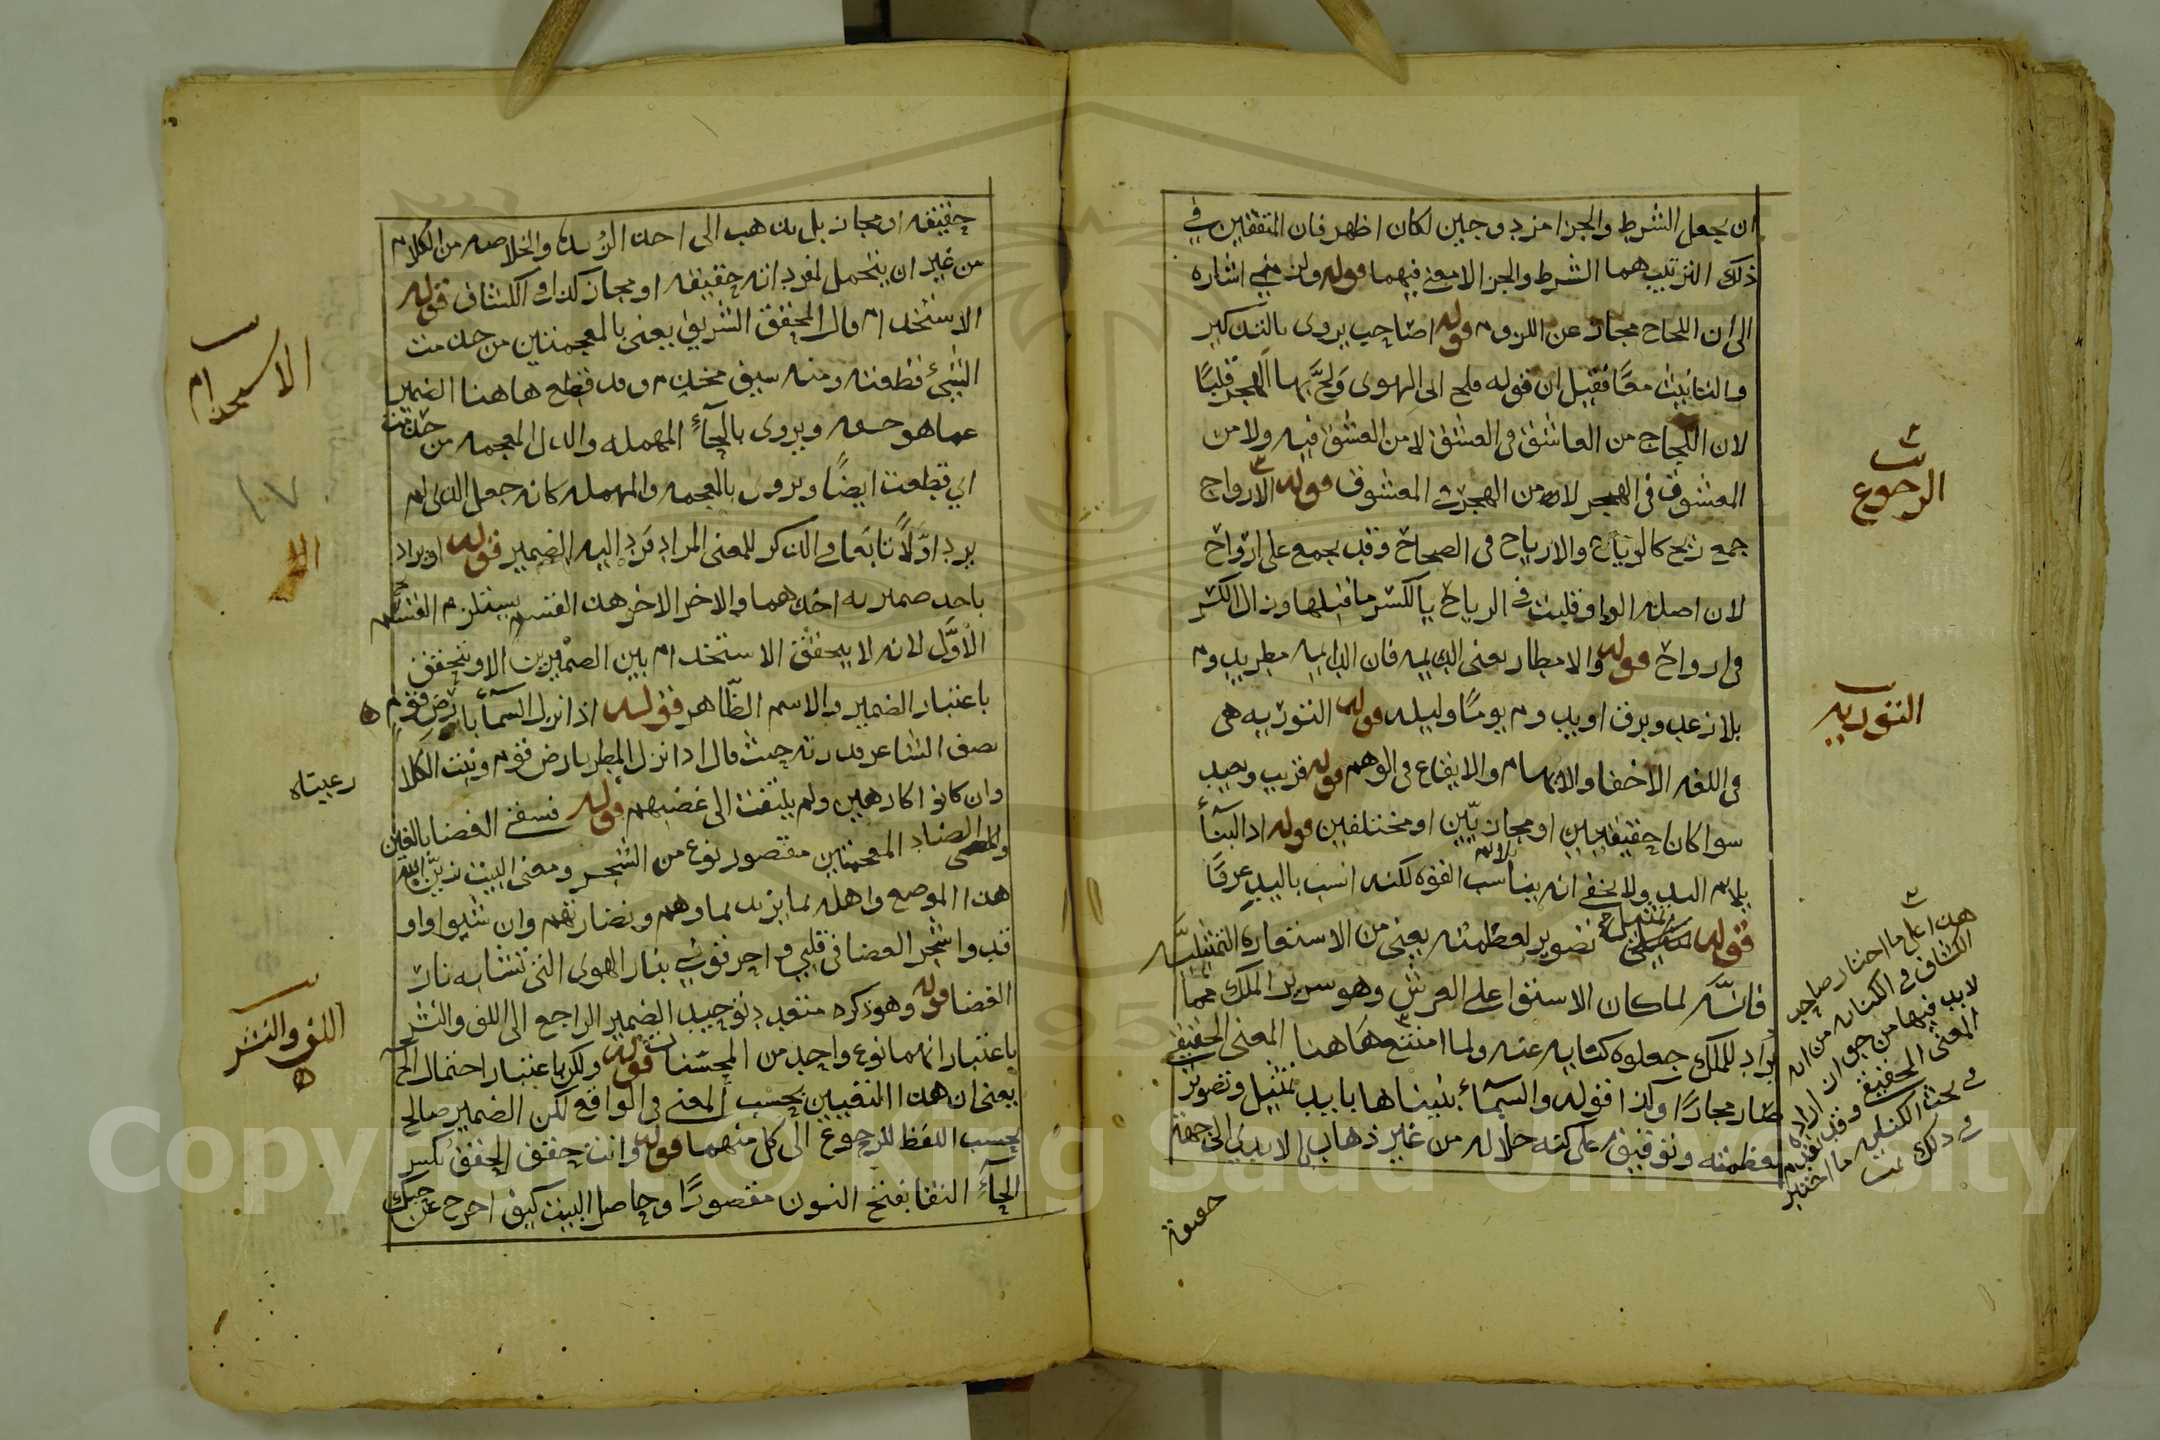 ان يجعل الشرط والجزا مزدوجين لكان اظهر فان المتفقين في
ذلك الترتيب هما الشرط والجزا لا معنى فيهما قوله ولذ اشاره
الى ان اللجاج مجاز عن اللزوم قوله اصاحب يروى بالتذكير
والتانيث معًا فقيل ان قوله فلج الى الهوى ولجّ بها الهجر قلبًا
لان اللجاج من العاشق في العشق لا من العشق فيه ولا من
المعشوق في الهجر لا من الهجر في المعشوق قوله الارواح
جمع ريح كالرياح والارياح في الصحاح وقد يجمع على ارواح
لان اصله الواو قلبت في الرياح يا لكسر ما قبلها وزال الكسر
في ارواح قوله والامطار يعني الديمه فان الديمه مطر يدوم
بلا رعد وبرق او يدوم يومًا وليله قوله التوريه هى
في اللغه الاخفا والابهام والايقاع في الوهم قوله قريب وبعيد
سوا كان حقيقيين او مجازيّين او مختلفين قوله اذ البنآ
يلايم اليد ولا يخفى انه يناسب القوه لكنه انسب باليد عرفًا
قوله تمثيل تصوير لعظمته يعني من الاستعاره التمثيليّه
فانّه لما كان الاستوا على العرش وهو سرير الملك مما
يراد للملك جعلوه كنايه عنه ولما امتنع هاهنا المعنى الحقيقي
صار مجازًا وكذا قوله والسمآء بنيناها بايد تمثيل وتصوير
لعظمته وتوقيف على كنه جلاله من غير ذهاب بالايدي الى جهة
حقيقة
الرجوع
التوريه
هذا على ما اختار صاحب
الكشاف في الكنايه من انه
لا بد فيها من جواز اراده
المعنى الحقيقي وقد تقدم
في بحث الكنايه ما اختير
في ذلك تمت
حقيقه او مجاز بل يذهب الى اخذ الزبده والخلاصه من الكلام
من غير ان يتحمل لمفرداته حقيقه او مجاز كذا في الكشاف قوله
الاستخدام قال المحقق الشريف يعني بالمعجمتين من خذمت
الشيئ قطعته ومنه سيف مخذم وقد قطع هاهنا الضمير
عما هو حقه ويروى بالحآء المهمله والذال المعجمه من حذمت
اي قطعت ايضًا ويروى بالمعجمه والمهمله كانه جعل الذى لم
يرد اوّلًا تابعا في الذكر للمعنى المراد فردّ اليه الضمير قوله او يراد
باحد ضميريه احدهما والاخر الاخر هذا القسم يستلزم القسم
الاوّل لانه لا يتحقق الاستخدام بين الضميرين الا ويتحقق
باعتبار الضمير والاسم الظّاهر قوله اذا نزل السمآ بارض قوم
يصف الشاعر قدرته حيث قال اذا نزل المطر بارض قوم ونبت الكلا
رعيناه
وان كانوا كارهين ولم يلتفت الى غضبهم قوله فسقى الغضا بالغين
والضاد المعجمتين مقصور نوع من الشجر ومعنى البيت
هذا الموضع واهله
قد واشجر الغضا في قلبي و بنار الهوى التي تشابه نار
الغضا قوله وهو ذكره متعدد توحيد الضمير الراجع الى اللف والنشر
باعتبار انهما نوع واحد من المحسنات قوله ولكن باعتبار احتمال الخ
يعني ان هذا التعيين بحسب المعنى في الواقع لكن الضمير صالح
بحسب اللفظ للرجوع الى كل منهما قوله وانت حقف الحقف بكسر
الحآء النقا بفتح النون مقصورًا وحاصل البيت كيف اخرج عن حبك
الاستخدام
١٧
اللف والنشر
Copy Right © King Saud University